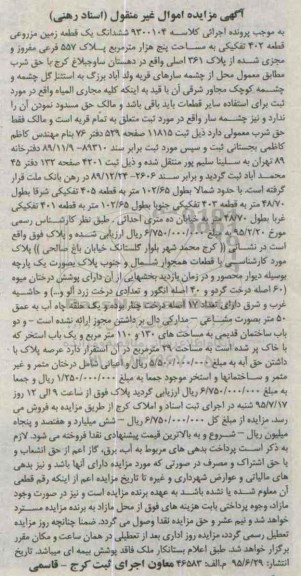 آگهی مزایده اموال غیر منقول (اسناد رهنی)
به موجب پرونده اجرائی کلاسه ۹۳۰۰۱۰۴ ششدانگ یک قطعه زمین مزروعی
قطعه ۴۰۲ تفکیکی به مساحت پنج هزار مترمربع پلاک ۵۵۷ فرعی مفروز و
مجزی شده از پلاک ۳۶۱ اصلی واقع در دهستان ساوجبلاغ کرج با حق شرب
مطابق معمول محل از چشمه سارهای قریه ولد آباد بزرگ به استثنا گل چشمه و
چشمه کوچک مجاور شرقی آن با قید به اینکه کلیه مجاری المیاه واقع در مورد
ثبت برای استفاده سایر قطعات باید باقی باشد و مالک حق مسدود نمودن آن را
ندارد و نیز چشمه سار واقع در مورد ثبت متعلق به تمام قریه است و مالک فقط
حق شرب معمولی دارد ذیل ثبت ۱۱۸۱۵ صفحه ۵۲۹ دفتر ۷۶ بنام مهندس کاظم
کاظمی بجستانی ثبت و سپس مورد ثبت برابر سند ۸۹۳۱۰-۸۹/۱۱/۹ دفترخانه
۸۹ تهران به سلینا سلیم پور منتقل شده و ذیل ثبت ۴۲۰۱ صفحه ۱۳۲ دفتر ۴۵
محمد آباد ثبت گردید و برابر سند ۲۶۰۶-۸۹/۱۲/۲۳ در رهن بانک ملت قرار
گرفته است، با حدود شمالا بطول ۱۰۲/۶۵ متر به قطعه ۴۰۵ تفکیکی شرقا بطول
۴۸/۷۰ متر به قطعه ۴۰۳ تفکیکی جنوبا بطول ۱۰۲/۶۵ متر به قطعه ۴۰۱ تفکیکی
غربا بطول ۴۸/۷۰ متر به خیابان ده متری احداثی. طبق نظر کارشناس رسمی
مورخ ۹۵/۲/۲۰ به مبلغ ۶/۷۵۰/۰۰۰/۰۰۰ ریال ارزیابی شده و پلاک فوق واقع
است در نشانی: (( کرج محمد شهر بلوار گلستانک خیابان باغ صالحی )) پلاک
مورد کارشناسی با قطعات همجوار شمال و جنوب پلاک بصورت یک پارچه
بوسیله دیوار محصور و در زمان بازدید بخشهایی از آن دارای پوشش درختان میوه
(۶۰ اصله درخت گردو و ۴۰ اصله انگور و تعدادی درخت زرد آلو و...) و حاشیه
غرب و شرق دارای تعداد ۱۷ اصله درخت چنار بوده و یک حلقه چاه آب به عمق
۵۰ متر بصورت مشاعی – مدارکی دال بر داشتن مجوز ارائه نشده است – و دو
باب ساختمان قدیمی به مساحت های ۱۳۰ و ۱۱۰ متر مربع و یک باب استخر که
با خاک پر شده است به مساحت ۲۹ مترمربع در آن استقرار دارد عرصه پلاک با
داشتن حق آبه به مبلغ ۵/۵۰۰/۰۰۰/۰۰۰ ریال و اعیانی شامل درختان مثمر و غیر
مثمر و ساختمانها و استخر موجود جمعا به مبلغ ۱/۲۵۰/۰۰۰/۰۰۰ ریال و جمعا
به مبلغ ۶/۷۵۰/۰۰۰/۰۰۰ ریال ارزیابی گردید پلاک فوق از ساعت ۹ الی ۱۲ روز
۹۵/۷/۱۷ شنبه در اجرای ثبت اسناد و املاک کرج از طریق مزایده به فروش می
رسد. مزایده از مبلغ کل ۶/۷۵۰/۰۰۰/۰۰۰ ریال – شش میلیارد و هفتصد و پنجاه
میلیون ریال – شروع و به بالاترین قیمت پیشنهادی نقدا فروخته می شود. لازم
به ذکر است پرداخت بدهی های مربوط به آب، برق، گاز اعم از حق انشعاب و
یا حق اشتراک و مصرف در صورتی که مورد مزایده دارای آنها باشد و نیز بدهی
های مالیاتی و عوارض شهرداری و غیره تا تاریخ مزایده اعم از اینکه رقم قطعی
آن معلوم شده یا نشده باشد به عهده برنده مزایده است و نیز در صورت وجود
مازاد، وجوه پرداختی بابت هزینه های فوق از محل مازاد به برنده مزایده مسترد
خواهد شد و نیم عشر و حق مزایده نقدا وصول می گردد. ضمنا چنانچه روز مزایده
تعطیل رسمی گردد، مزایده روز اداری بعد از تعطیلی در همان ساعت و مکان مقرر
برگزار خواهد شد. طبق اعلام بستانکار ملک فاقد پوشش بیمه ای میباشد. تاریخ
انتشار: ۹۵/۶/۲۹ م-الف: ۴۶۵۸۲ معاون اجرای ثبت کرج – قاسمی